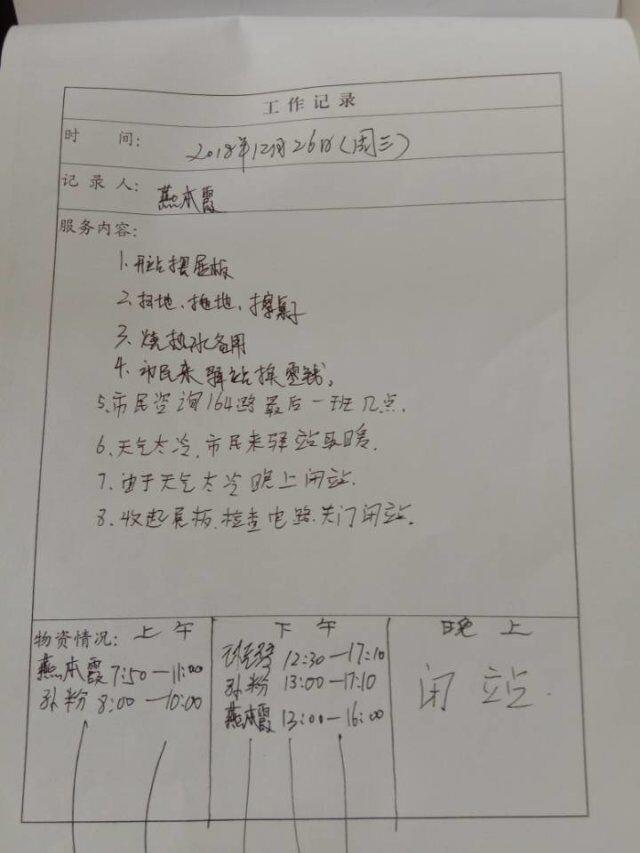 工作记录
时 间: 2018年12月26日(周三)
记录人: 燕本霞
服务内容:
1. 开站摆展板
2. 扫地、拖地、擦桌子
3. 烧热水备用
4. 市民来驿站换零钱。
5. 市民咨询164路最后一班几点.
6. 天气太冷,市民来驿站取暖.
7. 由于天气太冷晚上闭站.
8. 收起展板.检查电路.关门闭站.
物资情况: 上午
燕本霞 7:50—11:00
孙粉 8:00—10:00
下午
12:30—17:10
孙粉 13:00—17:10
燕本霞 13:00—16:00
晚上
闭站.